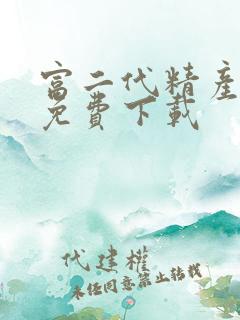 富二代精産
免費下載
代建權
未经同意禁止转载